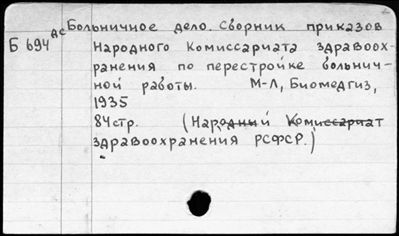 дс Больничное дело. Сборник приказов
Б 694 Народного Комиссариата здравоох-
ранения по перестройке больнич-
ной работы. М-Л, Биомедгиз,
1935
84стр. (Народный Комиссариат
здравоохранения РСФСР.)